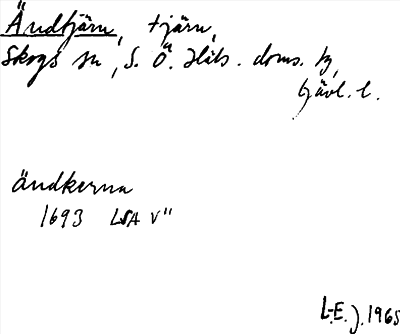 Ändtjärn, tjärn,
Skogs sn, S. Ö. Häls. doms. tg,
Gävl. l.
ändkerna
1693 LSA V"
L-E. J. 1965